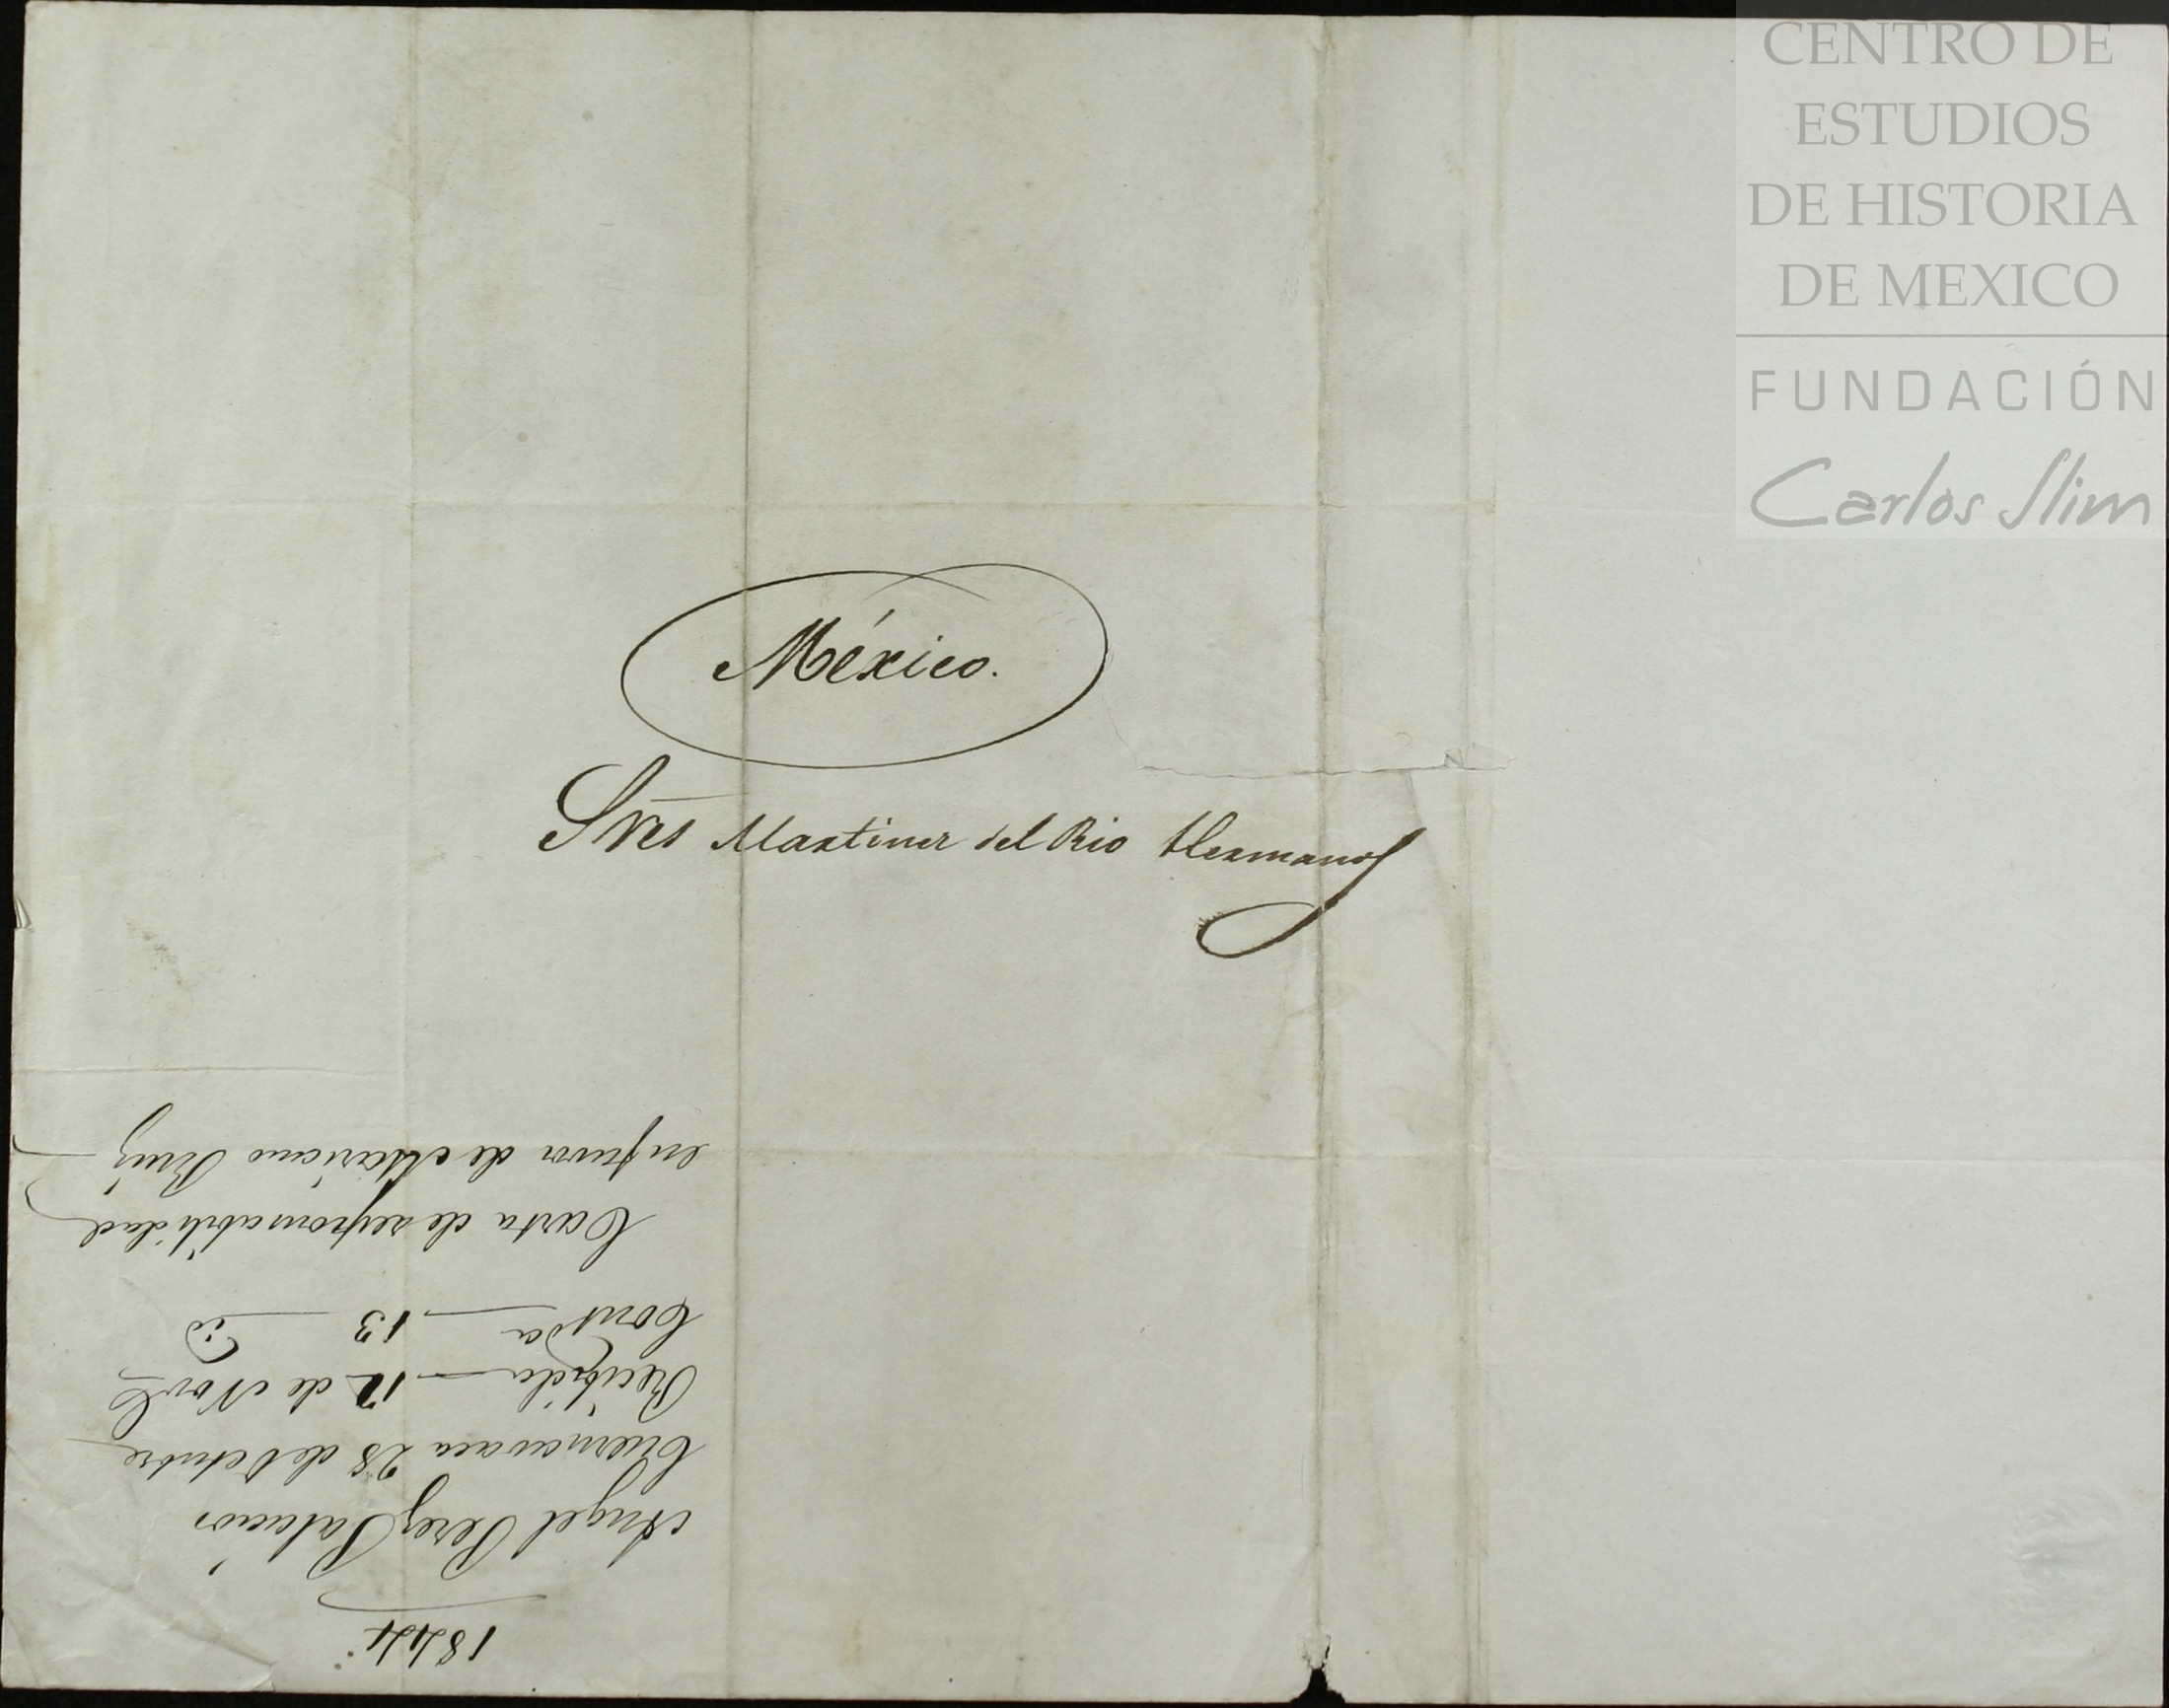 CENTRO DE
ESTUDIOS
DE HISTORIA
DE MEXICO
FUNDACIÓN
Carlos Slim
México.
Sres Martinez del Rio Hermanos
1844
Angel Perez Palacios
Cuernavaca 28 de Octubre
Recibida 12 de Nove
Contda 13 id
Carta de responsabilidad
en favor de Mariano Ruiz